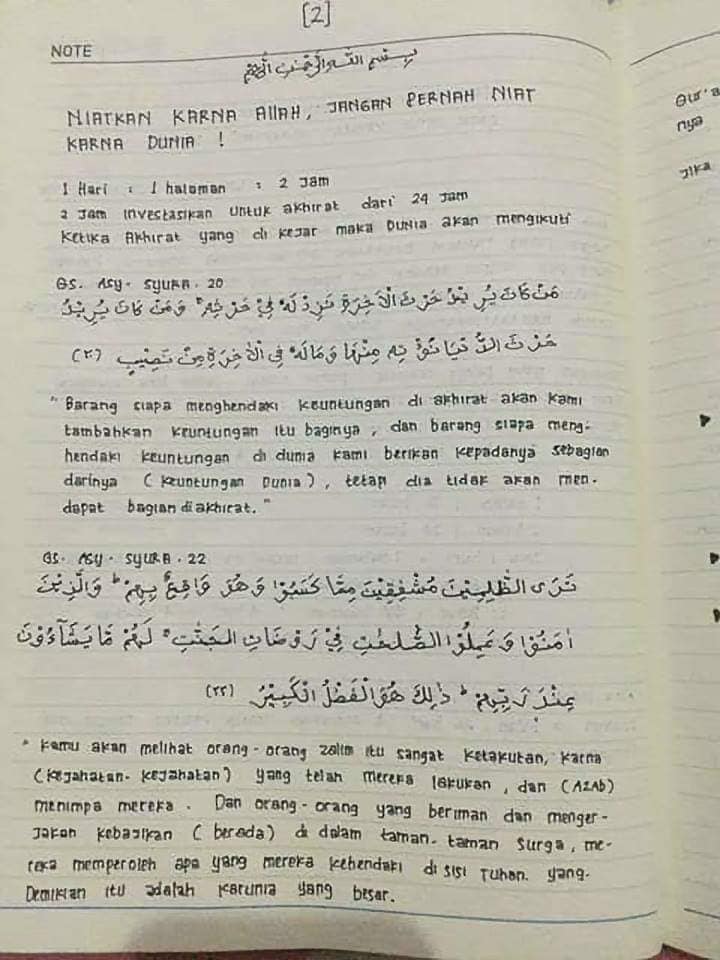 [2]
NOTE
بِسْمِ اللهِ الرَّحْمٰنِ الرَّحِيْمِ
NIATKAN KARNA ALLAH, JANGAN PERNAH NIAT
KARNA DUNIA !
1 Hari : 1 halaman : 2 Jam
2 Jam investasikan untuk akhirat dari 24 Jam
Ketika Akhirat yang di kejar maka Dunia akan mengikuti
QS. ASY- SYURA . 20
مَنْ كَانَ يُرِيْدُ حَرْثَ الْاٰخِرَةِ نَزِدْ لَهٗ فِيْ حَرْثِهٖۚ وَمَنْ كَانَ يُرِيْدُ
حَرْثَ الدُّنْيَا نُؤْتِهٖ مِنْهَا وَمَا لَهٗ فِى الْاٰخِرَةِ مِنْ نَّصِيْبٍ (٢٠)
" Barang siapa menghendaki keuntungan di akhirat akan kami
tambahkan keuntungan itu baginya , dan barang siapa meng-
hendaki keuntungan di dunia kami berikan kepadanya sebagian
darinya ( keuntungan Dunia ) , tetapi dia tidak akan men-
dapat bagian di akhirat. "
QS. ASY- SYURA . 22
تَرَى الظّٰلِمِيْنَ مُشْفِقِيْنَ مِمَّا كَسَبُوْا وَهُوَ وَاقِعٌۢ بِهِمْ ۗ وَالَّذِيْنَ
اٰمَنُوْا وَعَمِلُوا الصّٰلِحٰتِ فِيْ رَوْضَاتِ الْجَنّٰتِۚ لَهُمْ مَّا يَشَاۤءُوْنَ
عِنْدَ رَبِّهِمْ ۗ ذٰلِكَ هُوَ الْفَضْلُ الْكَبِيْرُ (٢٢)
" Kamu akan melihat orang - orang zalim itu sangat ketakutan, karna
(kejahatan- kejahatan) yang telah mereka lakukan , dan (AZAB)
menimpa mereka . Dan orang - orang yang beriman dan menger-
jakan kebajikan ( berada) di dalam taman- taman Surga , me-
reka memperoleh apa yang mereka kehendaki di sisi Tuhan. yang-
Demikian itu adalah karunia yang besar.
Qur'a
nya
Jika